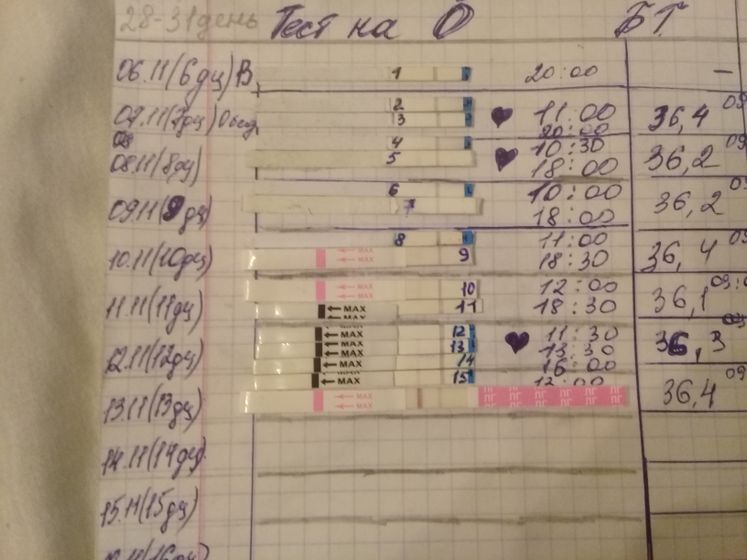 28-31 день Тест на О БТ
06.11(6дц)В 1 20:00 —
07.11(7дц) 2 11:00 36,4 09
3 20:00
08
08.11(8дц) 4 10:30 36,2 09
5 18:00
09.11(9дц) 6 10:00 36,2 09
7 18:00
10.11(10дц) 8 11:00 36,4 09
← MAX 9 18:30
← MAX
11.11(11дц) ← MAX 10 12:00 36,1 09:0
← MAX
← MAX 11 18:30
12.11(12дц) ← MAX 12 11:30 36,3
← MAX 13 13:30
← MAX 14 16:00
← MAX 15
13.11(13дц) ← MAX ЛГ ЛГ ЛГ ЛГ ЛГ ЛГ 36,4 09
← MAX ЛГ ЛГ ЛГ ЛГ ЛГ ЛГ
14.11(14дц)
15.11(15дц)